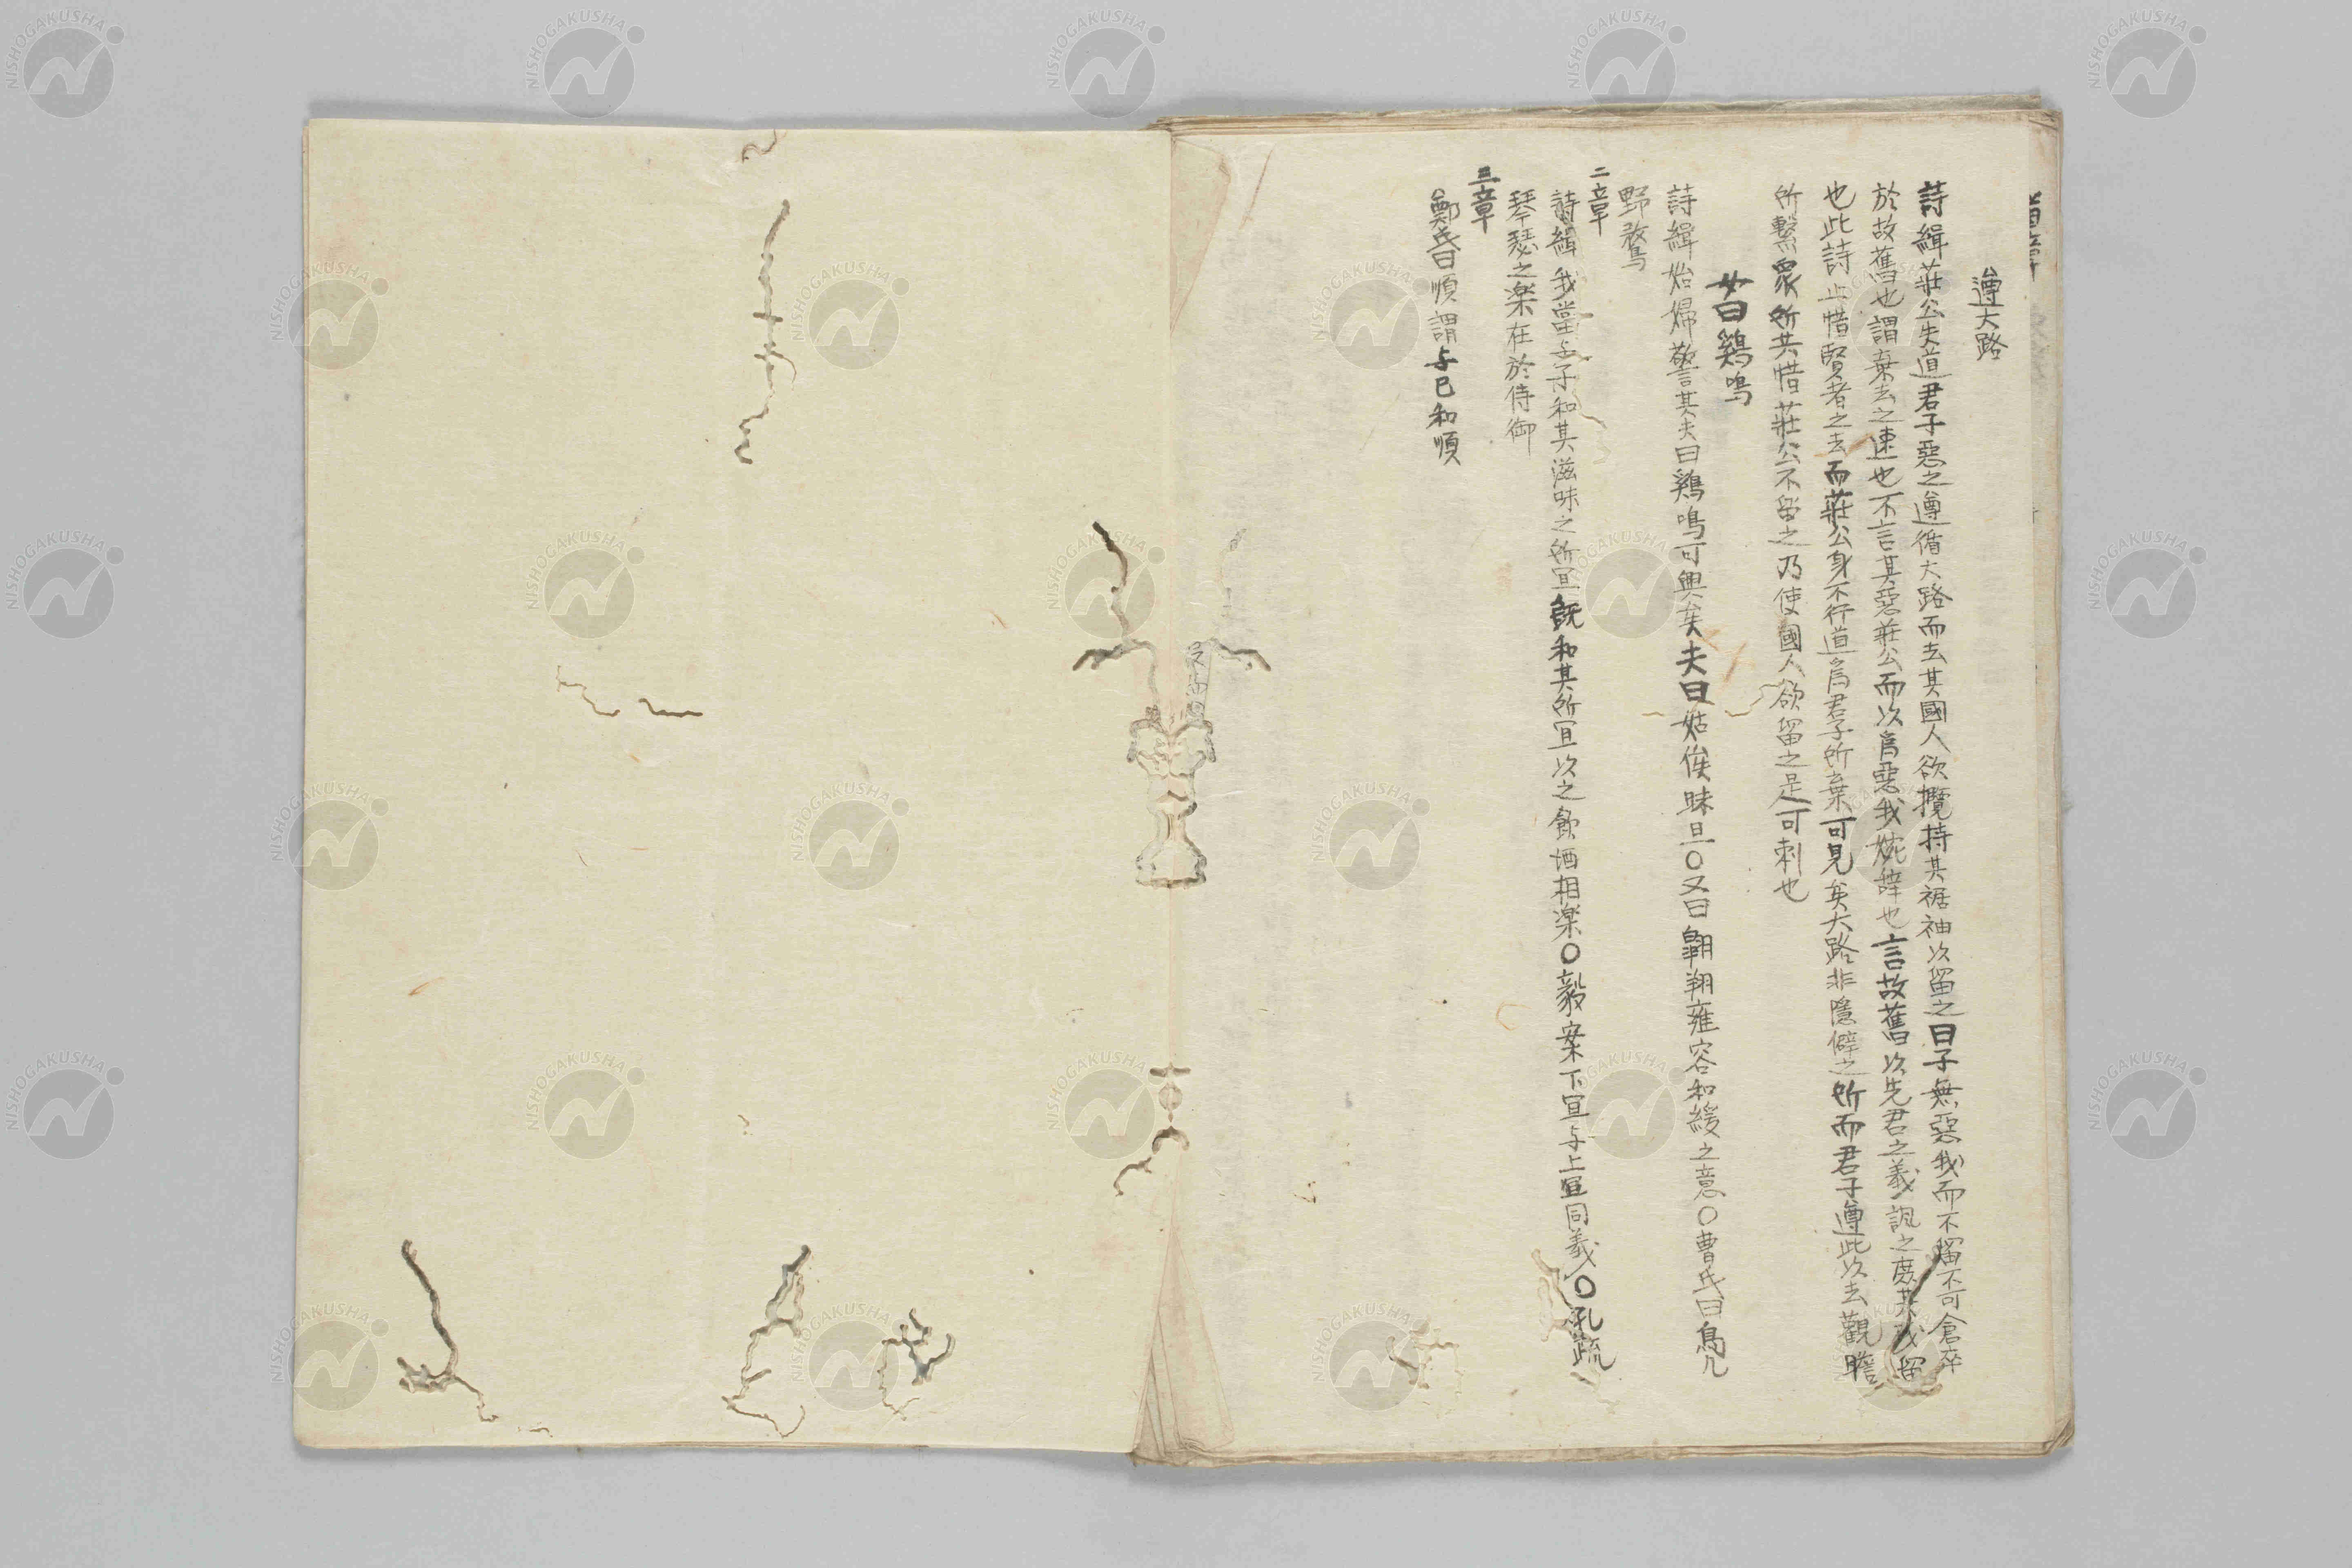 遵大路
詩緝莊公失道君子惡之遵循大路而去其國人欲攬持其裾袖以留之曰子無惡我而不留不可倉卒
於故舊也謂棄去之速也不言其惡莊公而以爲惡我婉辞也言故舊以先君之義諷之庶其或留
也此詩止惜賢者之去而莊公身不行道爲君子所棄可見矣大路非隱僻之所而君子遵此以去觀瞻
所繫衆所共惜莊公不留之乃使國人欲留之是可刺也
女曰鷄鳴
詩緝始婦警其夫曰鷄鳴可興矣夫曰姑俟昧旦〇又曰翺翔雍容和緩之意〇曹氏曰鳥几
野鶩
二章
詩緝我當与子和其滋味之所宜既和其所宜以之飲酒相楽〇毅案下宜与上宜同義〇孔疏
琴瑟之楽在於侍御
三章
鄭氏曰順謂与己和順
NISHOGAKUSHA